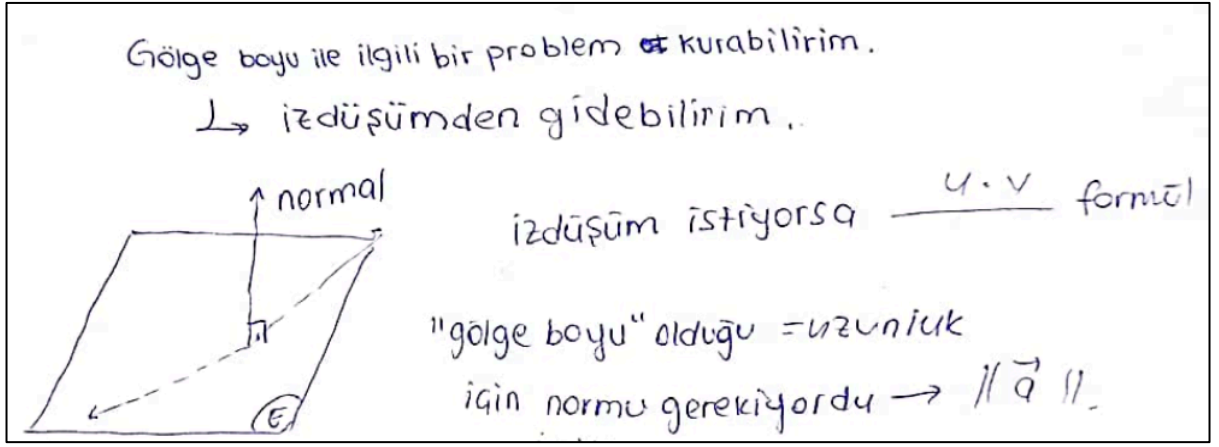 Gölge boyu ile ilgili bir problem kurabilirim.
↳ izdüşümden gidebilirim.
normal
izdüşüm istiyorsa u.v formül
"gölge boyu" olduğu = uzunluk
için normu gerekiyordu → ||a⃗||.
E